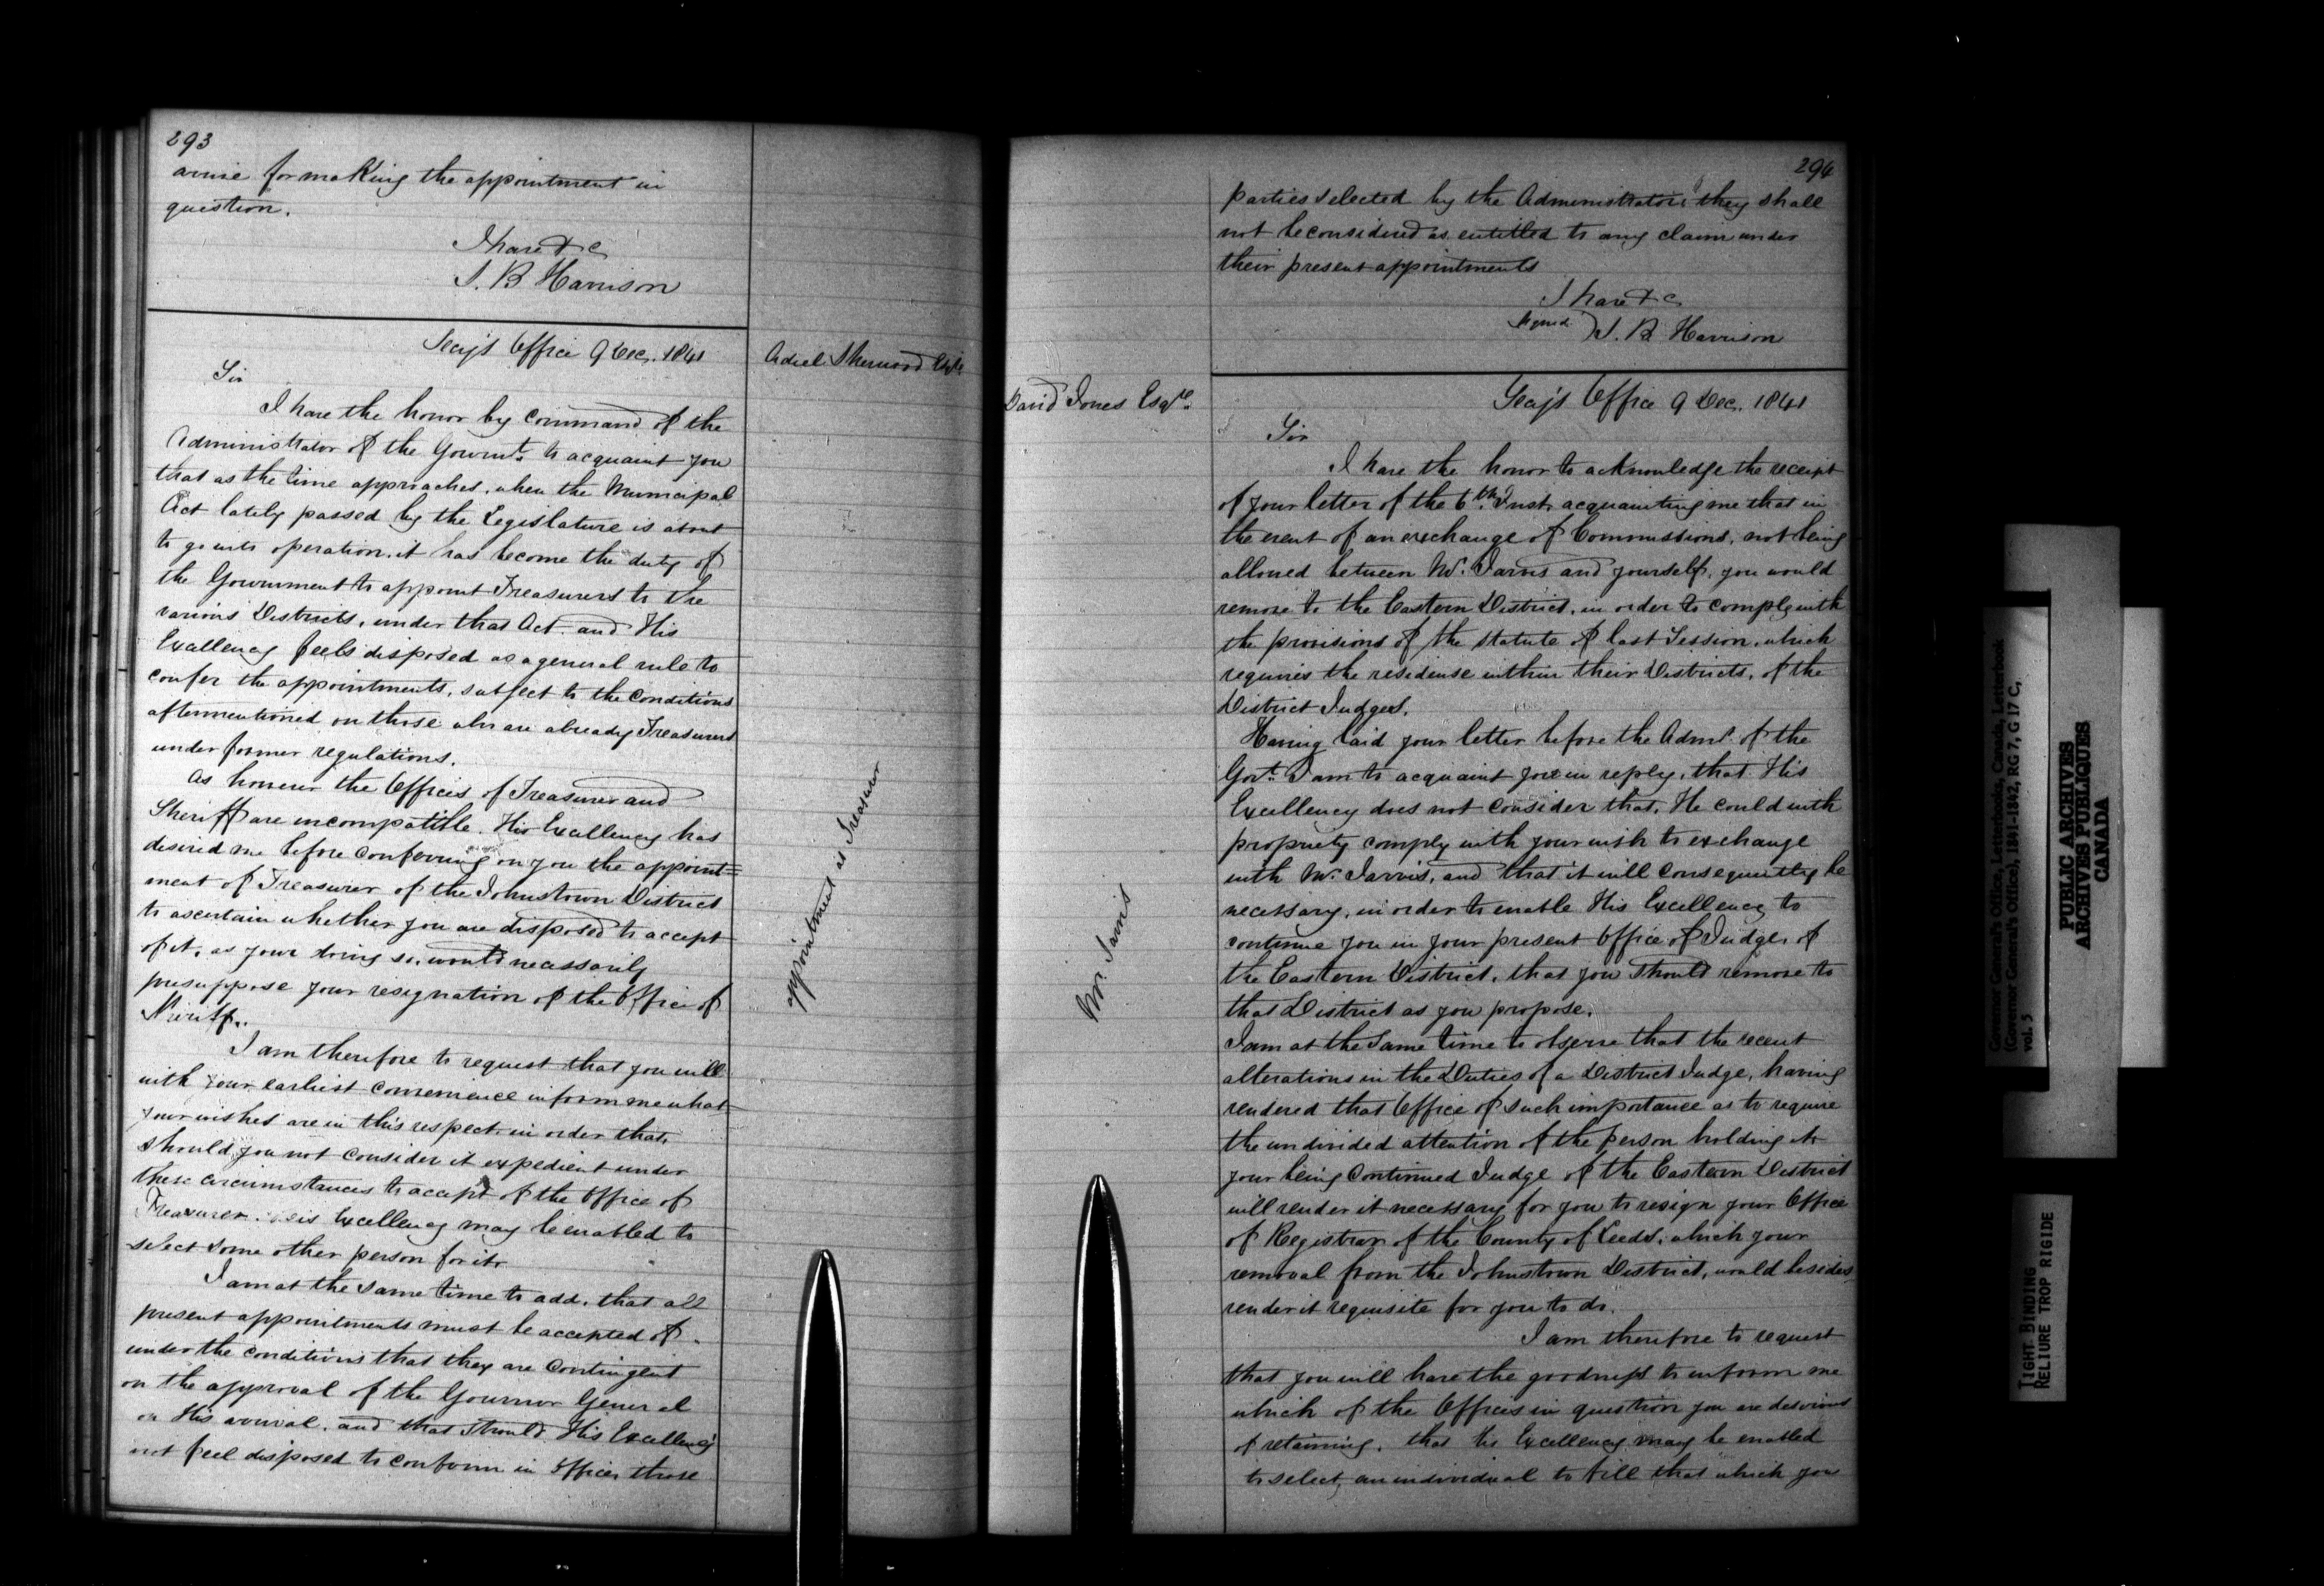 293
arise for making the appointment in
question.
I have &c
S. B Harrison
Secy's Office 9 Dec. 1841
Adiel Sherwood Esqre
Sir
I have the honor by command of the
Administrator of the Governt. to acquaint you
that as the time approaches, when the Municipal
Act lately passed by the Legislature is about
to go into operation, it has become the duty of
the Government to appoint Treasurers to the
various Districts, under that Act and His
Excellency feels disposed as a general rule to
confer the appointments, subject to the conditions
aftermentioned on those who are already Treasurers
under former regulations.
As however the Offices of Treasurer and
Sheriff are incompatible. His Excellency has
desired me before conferring on you the appoint=
ment of Treasurer of the Johnstown District
to ascertain whether you are disposed to accept
of it, as your doing so, would necessarily
presuppose your resignation of the Office of
Sheriff.
appointment as Treasurer
I am therefore to request that you will
with your earliest convenience inform me what
your wishes are in this respect in order that,
should you not consider it expedient under
these circumstances to accept of the Office of
Treasurer. His Excellency may be enabled to
select some other person for it.
I am at the same time to add, that all
present appointments must be accepted of
under the conditions that they are contingent
on the approval of the Governor General
on His arrival, and that should His Excellency
not feel disposed to confirm in Office those
294
parties selected by the Administrator they shall
not be considered as entitled to any claim under
their present appointments
I have &c
Signed S. B. Harrison
Secy's Office 9 Dec. 1841
David Jones Esqre.
Sir
I have the honor to acknowledge the receipt
of your letter of the 6th. Inst. acquainting me that in
the event of an exchange of Commissions, not being
allowed between Mr. Jarvis and yourself, you would
remove to the Eastern District, in order to comply with
the provisions of the statute of last Session, which
requires the residense within their Districts, of the
District Judges.
Having laid your letter before the Admr. of the
Govt. I am to acquaint you in reply, that His
Excellency does not consider that, He could with
propriety comply with your wish to exchange
with Mr. Jarvis, and that it will consequently be
necessary, in order to enable His Excellency to
continue you in your present Office of Judge, of
the Eastern District, that you should remove to
that District as you propose.
Mr. Jarvis
I am at the same time to observe that the recent
alterations in the Duties of a District Judge, having
rendered that Office of such importance as to require
the undivided attention of the person holding it
your being Continued Judge of the Eastern District
will render it necessary for you to resign your Office
of Registrar of the County of Leeds, which your
removal from the Johnstown District, would besides
render it requisite for you to do.
I am therefore to request
that you will have the goodness to inform me
which of the Offices in question you are desirous
of retaining, that His Excellency may be enabled
to select, an individual to fill that which you
Governor General's Office, Letterbooks, Canada, Letterbook
(Governor General's Office), 1841-1842, RG 7, G 17 C,
vol. 5
PUBLIC ARCHIVES
ARCHIVES PUBLIQUES
CANADA
TIGHT BINDING
RELIURE TROP RIGIDE